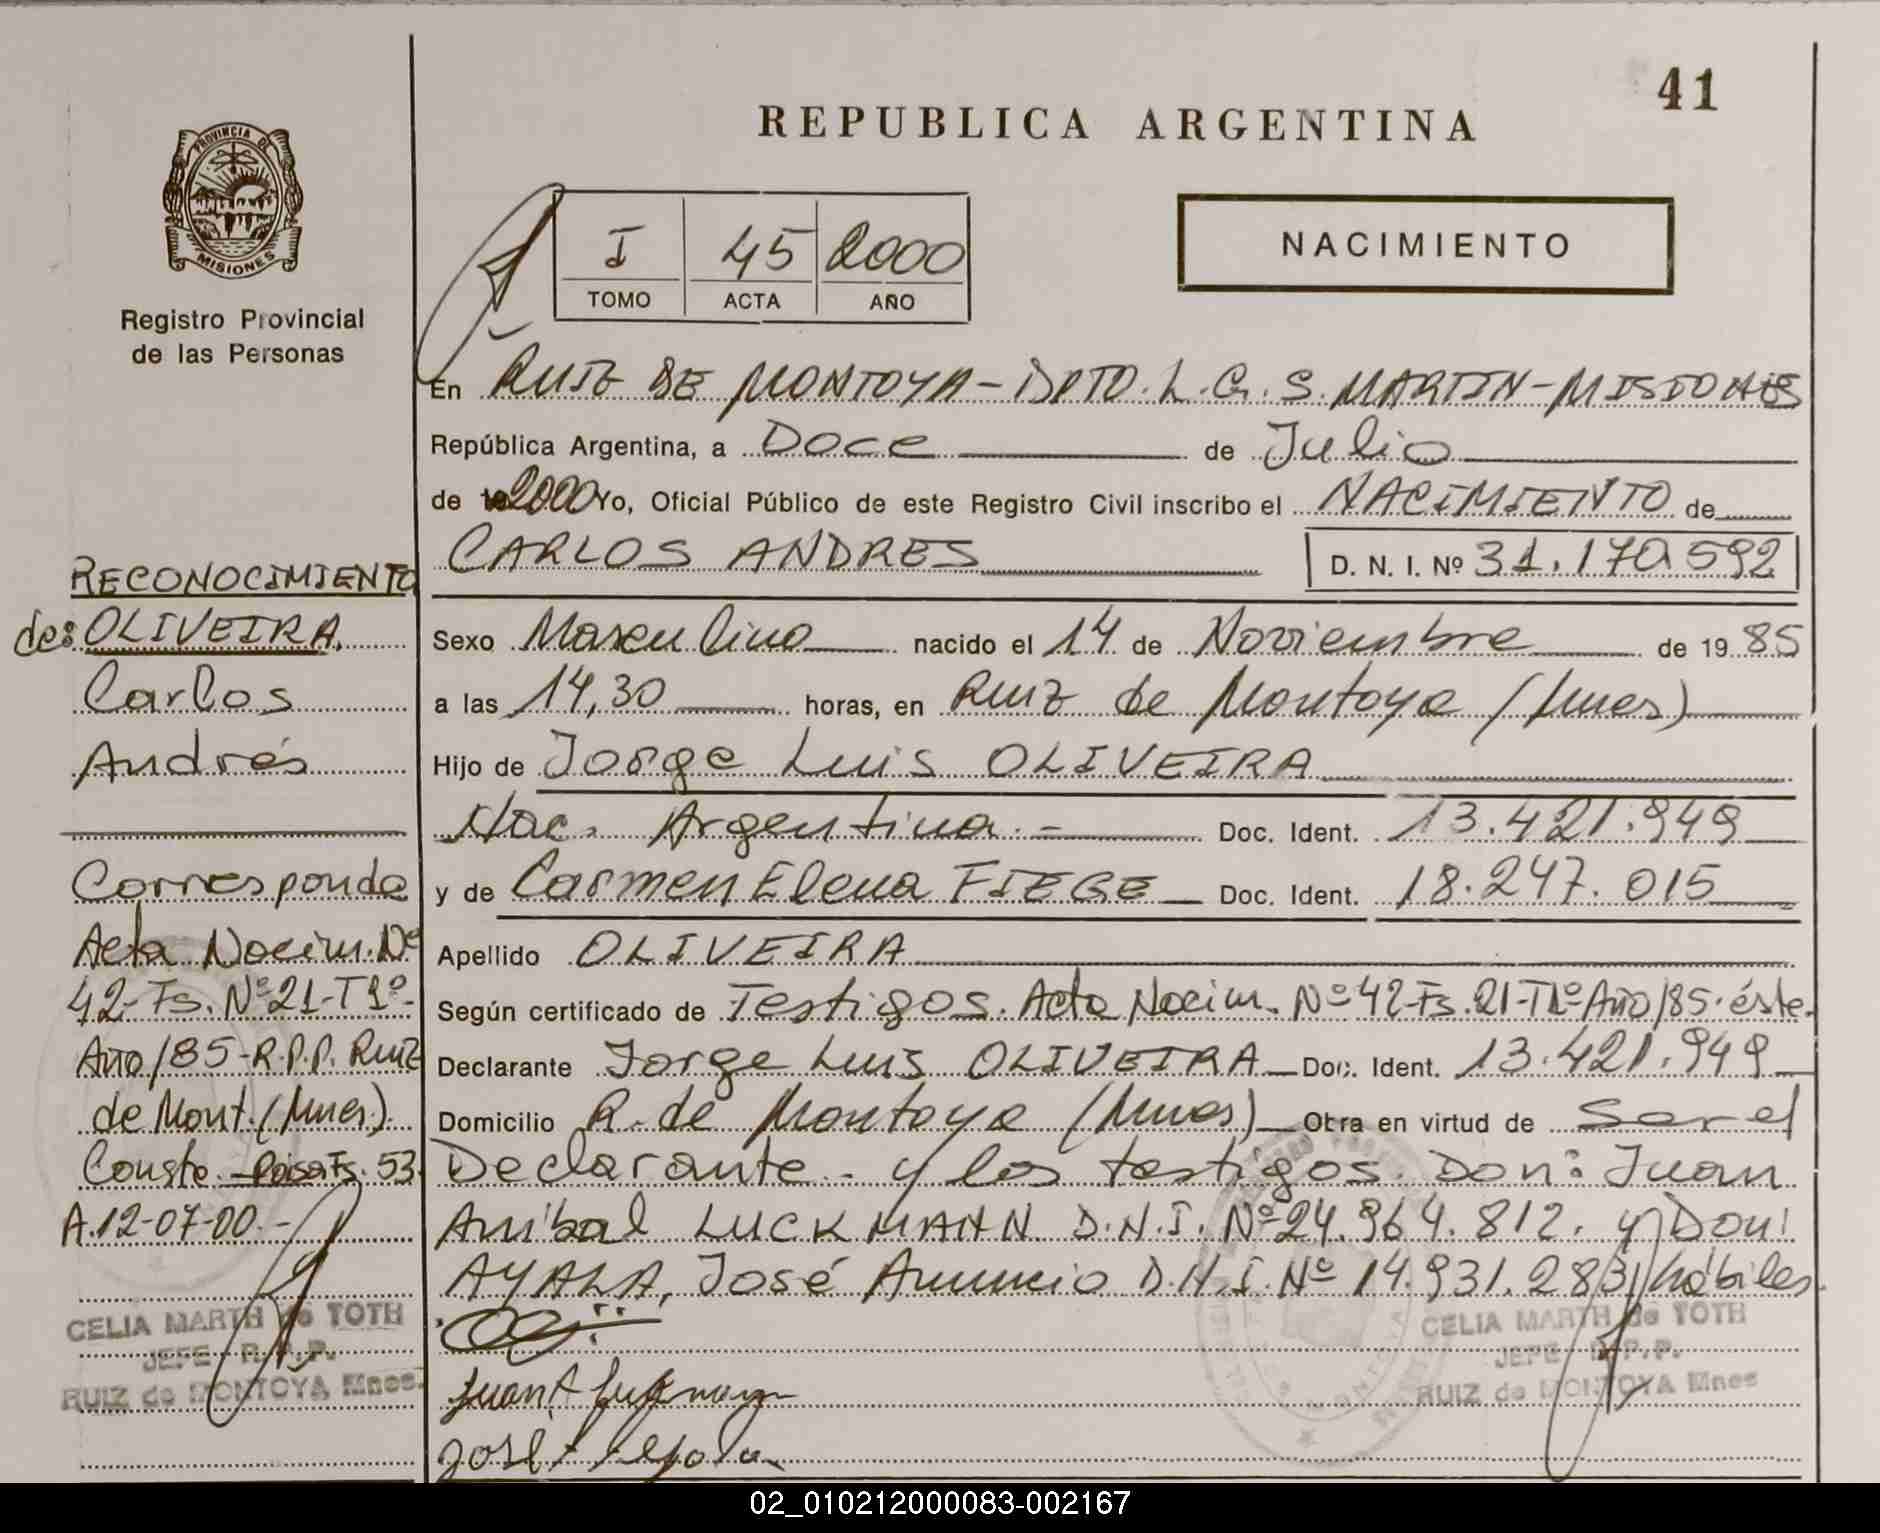 41
REPUBLICA ARGENTINA
PROVINCIA DE
MISIONES
Registro Provincial
de las Personas
I 45 2000
TOMO ACTA AÑO
NACIMIENTO
En RUIZ DE MONTOYA - DPTO. L. G. S. MARTIN - MISIONES
República Argentina, a Doce de Julio
de 2000 Yo, Oficial Público de este Registro Civil inscribo el NACIMIENTO de
CARLOS ANDRES D. N. I. Nº 31.170.592
Sexo Masculino nacido el 14 de Noviembre de 1985
a las 14,30 horas, en Ruiz de Montoya (Mnes)
Hijo de Jorge Luis OLIVEIRA
Nac. Argentina.- Doc. Ident. 13.421.949
y de Carmen Elena FIEGE Doc. Ident. 18.247.015
Apellido OLIVEIRA
Según certificado de Testigos. Acta Nacim. Nº 42-Fs. 21-T1º-Año/85. éste.
Declarante Jorge Luis OLIVEIRA Doc. Ident. 13.421.949
Domicilio R. de Montoya (Mnes) Obra en virtud de Ser el
Declarante.- y los testigos. Don: Juan
Anibal LUCKMANN D.N.I. Nº 24.964.812. y Don:
AYALA, José Anuncio D.N.I. Nº 14.931.283/hábiles
RECONOCIMIENTO
de: OLIVEIRA.
Carlos
Andrés
Corresponde
Acta Nacim. Nº
42-Fs. Nº 21-T1º-
Año/85-R.P.P. Ruiz
de Mont. (Mnes).
Conste. - Fs. 53.
A. 12-07-00.-
CELIA MARTH de TOTH
JEFE R.P.P.
RUIZ de MONTOYA Mnes.
CELIA MARTH de TOTH
JEFE R.P.P.
RUIZ de MONTOYA Mnes
02_010212000083-002167